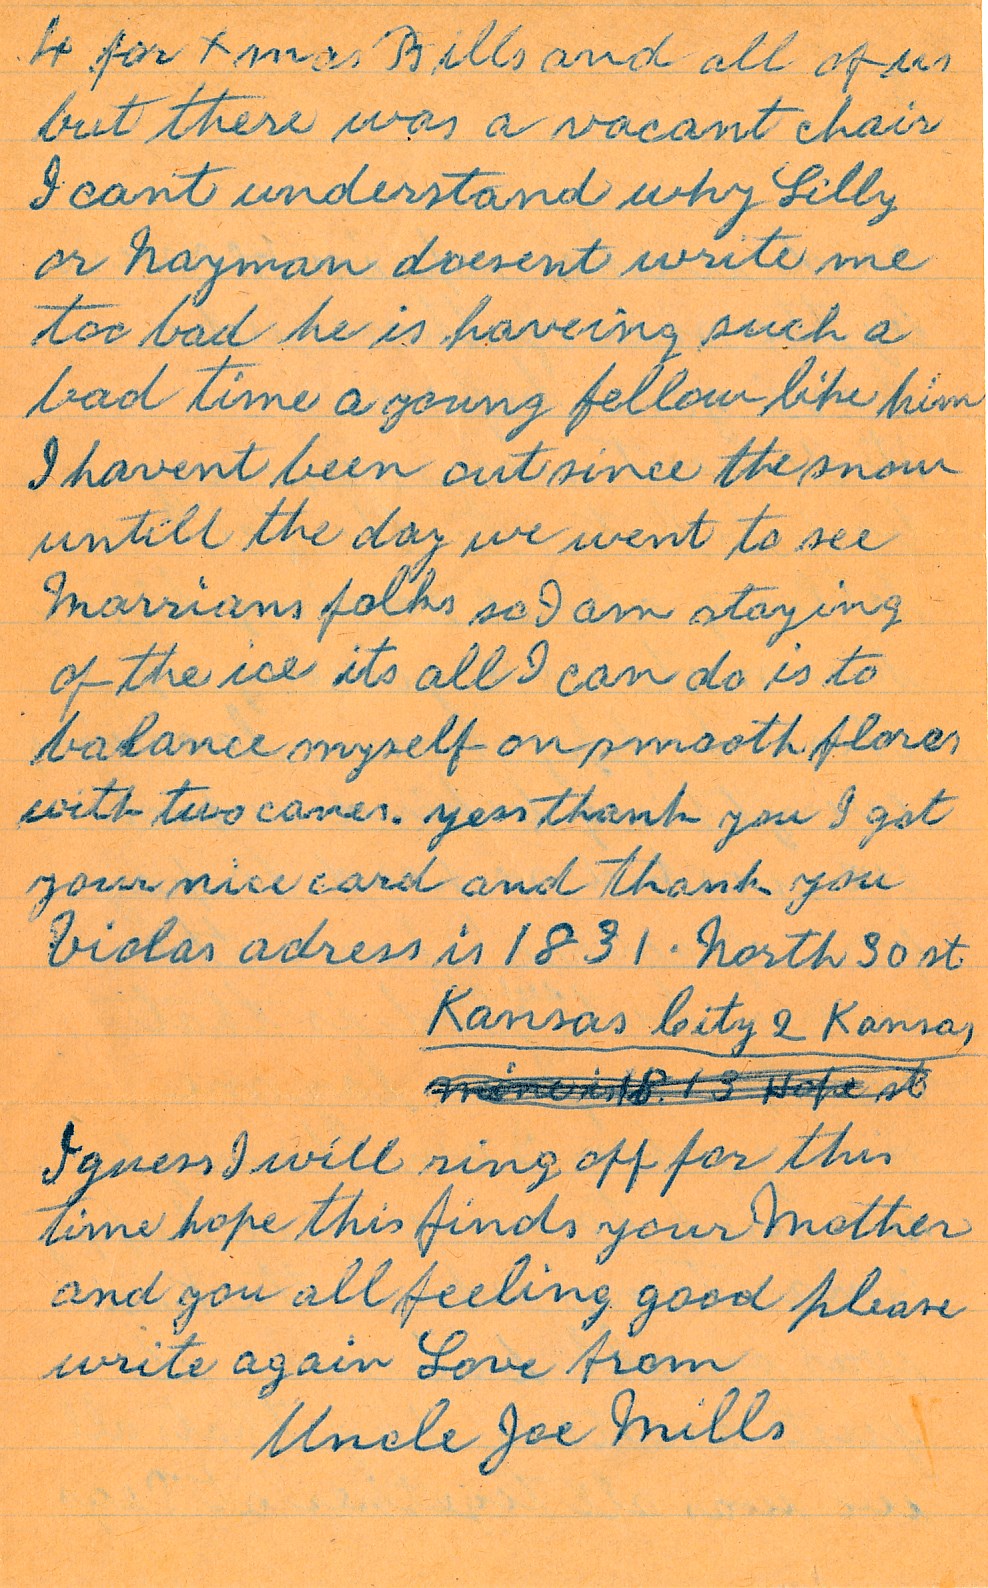 4 for Xmas Bills and all of us
but there was a vacant chair
I cant understand why Lilly
or Nayman doesent write me
too bad he is haveing such a
bad time a young fellow like him
I havent been out since the snow
untill the day we went to see
Marrians folks so I am staying
of the ice its all I can do is to
balance myself on smooth flores
with two canes. yess thank you I got
your nice card and thank you
Violas adress is 1831. North 30 st
Kansas City 2 Kansas
mine is 18.13 Hope st
I guess I will ring off for this
time hope this finds your Mother
and you all feeling good please
write again Love from
Uncle Joe Mills